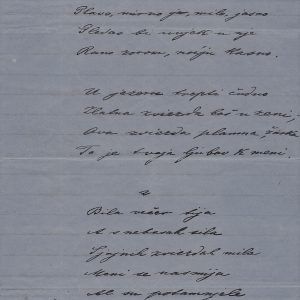 Plavo, mirno je, milo, jasno
Gledao bi uvjek u nje
Rano zorom, noćju kasno.
U jezeru trepti čudno
Zlatna zviezda baš u zeni,-
Ova zviezda plamna, žarka
To je tvoja ljubav k meni.
2
Bila večer tija
A s nebesah sila
Ljepih zviezdah mila
Meni se nasmija
Al su potamnjele